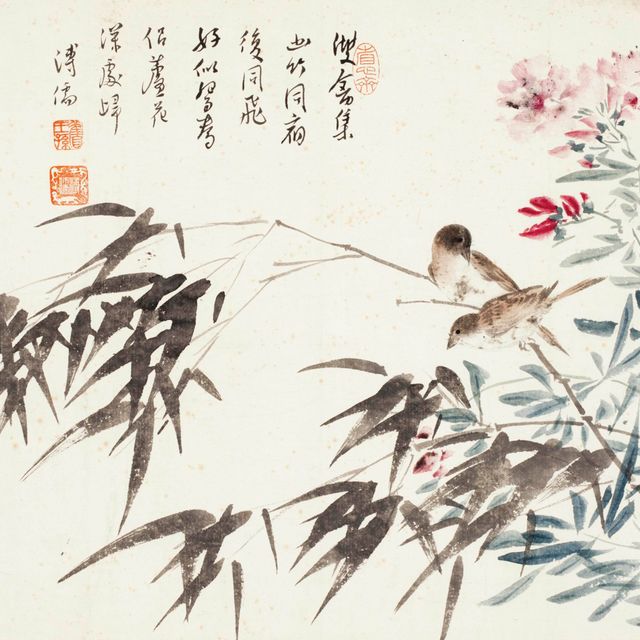 雙禽集
幽竹同宿
復同飛
好似鴛鴦
侶蘆花
深處歸
溥儒
舊王孫